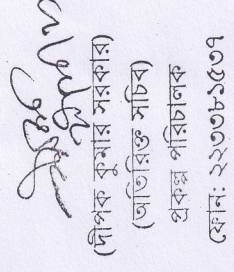 (দীপক কুমার সরকার)
(অতিরিক্ত সচিব)
প্রকল্প পরিচালক
ফোন: ২২৩৩৮১৫৩৭